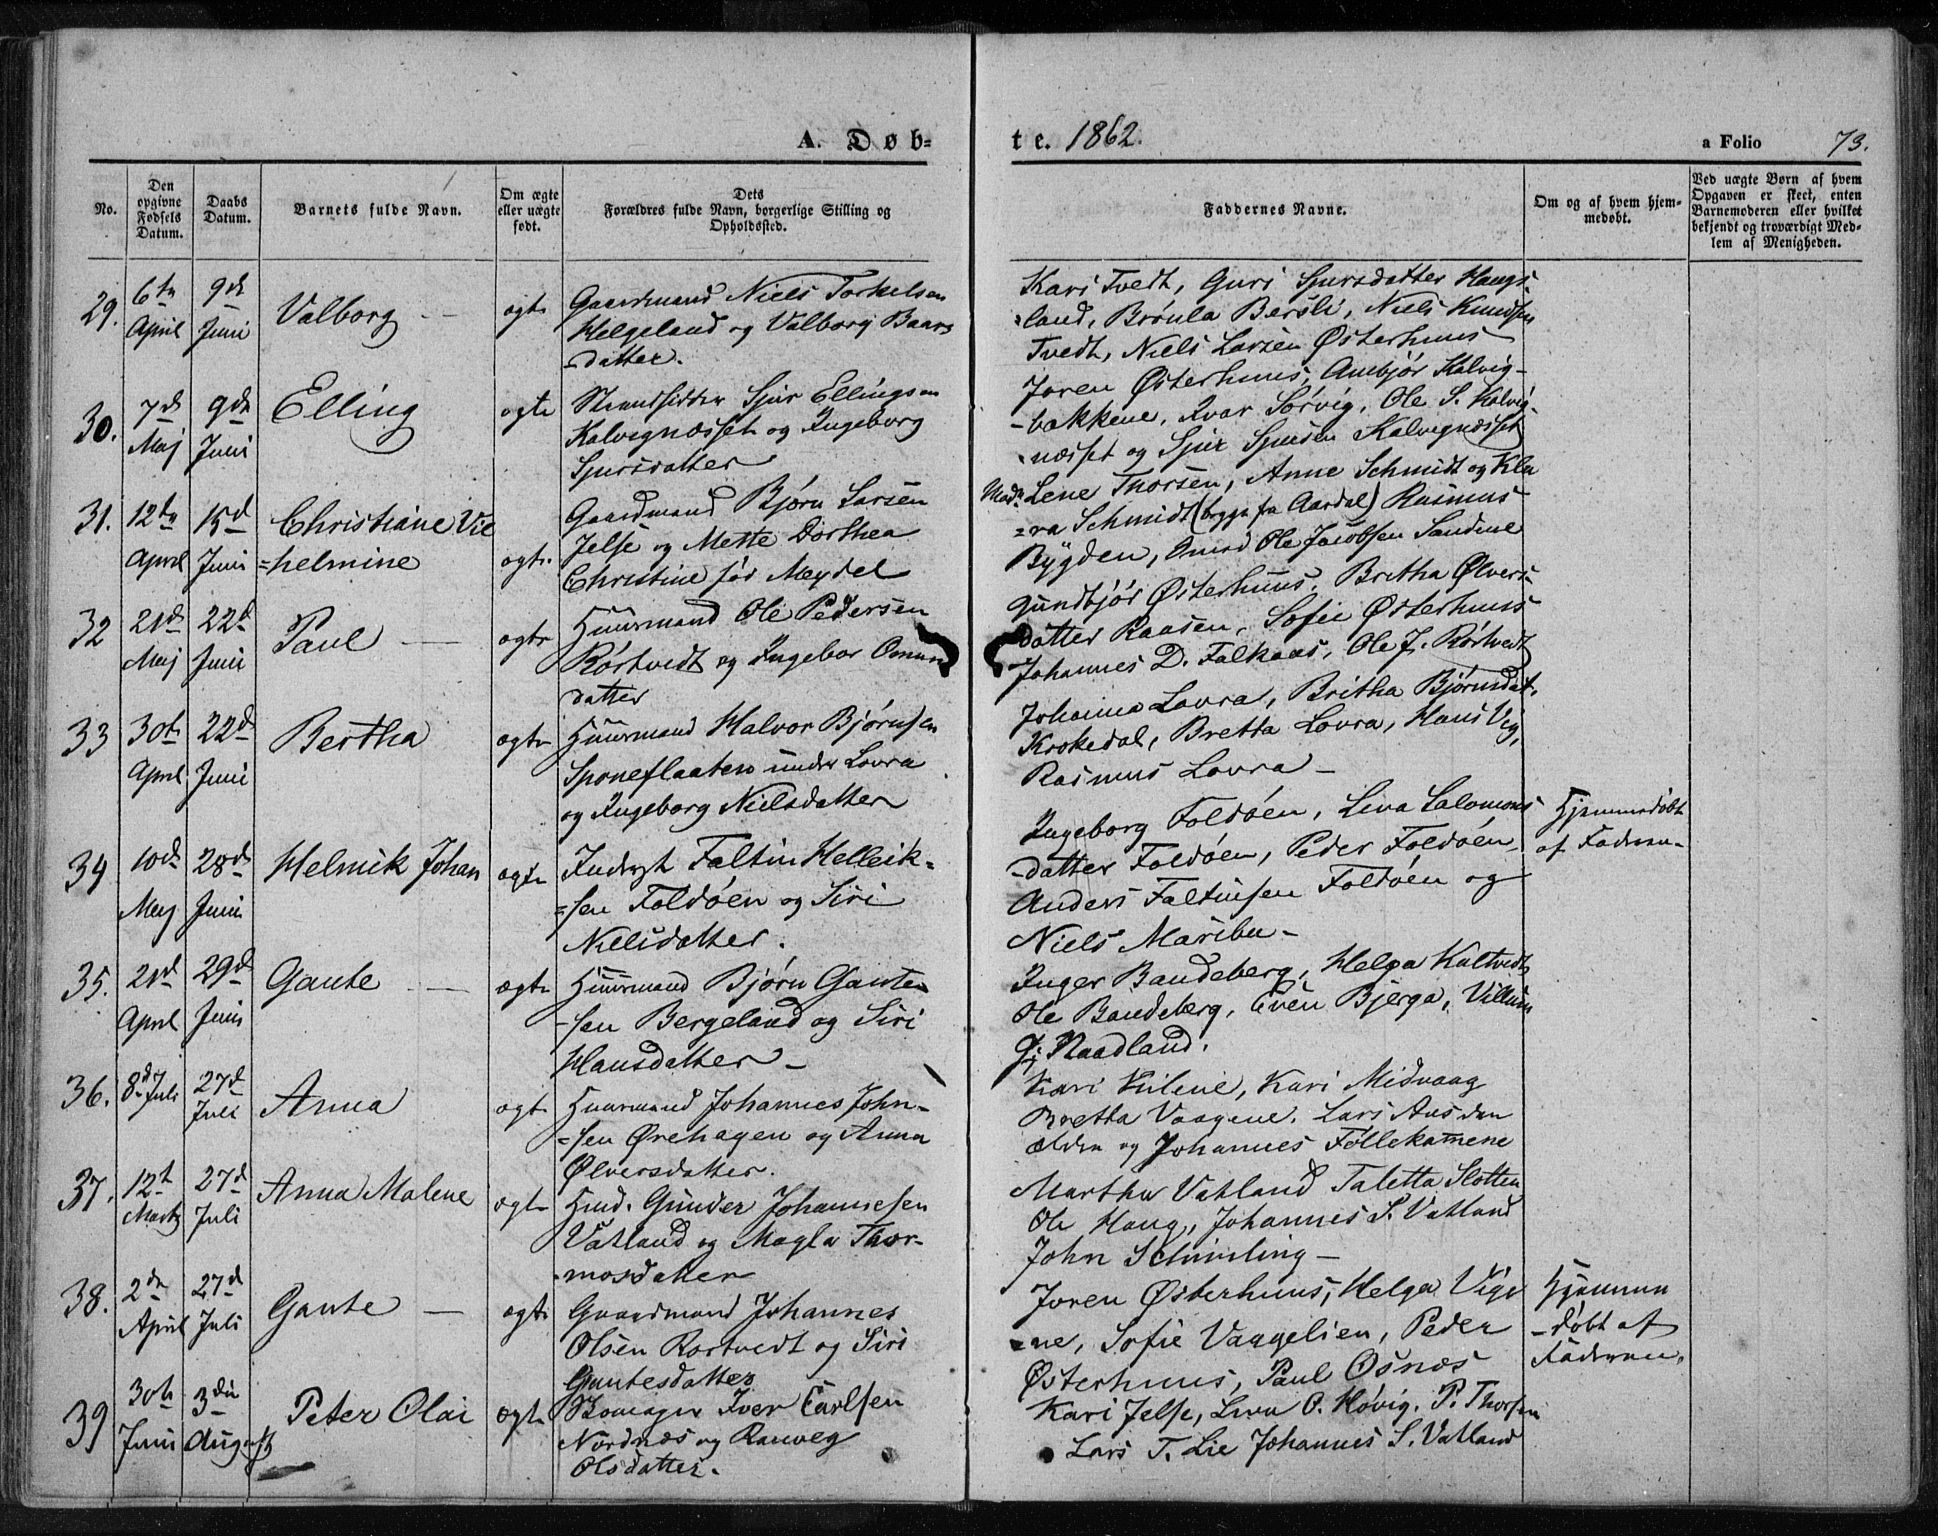 A. Døb=
te. 1862.
a Folio 73.
No.
Den opgivne Fødsels Datum.
Daabs Datum.
Barnets fulde Navn.
Om ægte eller uægte født.
Dets Forældres fulde Navn, borgerlige Stilling og Opholdssted.
Faddernes Navne.
Om og af hvem hjem- medøbt.
Ved uægte Børn af hvem Opgaven er skeet, enten Barnemoderen eller hvilket bekjendt og troværdigt Med- lem af Menigheden.
29. 6te April 9de Juni Valborg ægte
Gaardmand Niels Torkelsen
Helgeland og Valborg Baars
-datter.
Kari Tvedt, Guri Sjursdatter Haugs-
land, Brønla Bersli, Niels Knudsen
Tvedt, Niels Larsen Østerhuus
30. 7d Maj 9de Juni Elling ægte
Strandsidder Sjur Ellingsen
Kalvignæsset og Ingeborg
Sjursdatter
Joren Østerhuus, Ambjør Kalvig-
-bakkene, Ivar Sørvig, Ole S. Kalvig-
næsset og Sjur Sjursen Kalvignæsset
31. 12te April 15d Juni Christiane Vil
=helmine ægte
Gaardmand Bjørn Larsen
Jelse og Mette Dorthea
Christine fød Meydel
Mad. Lene Thorsen, Anne Schmidt og Kla
=ra Schmidt (begge fra Aardal) Rasmus
Bygden, Ole Jacobsen Sandene
32 21d Maj 22d Juni Paul ægte
Huusmand Ole Pedersen
Rørtvedt og Ingebor
datter
Gundbjør Østerhuus, Britha Ølvers-
datter Raasen, Sofie Østerhuus
Johannes D. Falkaas, Ole J. Rørtvedt
33 30te April 22d Juni Bertha ægte
Huusmand Halvor Bjørnsen
Sponeflaaten under Lovra
og Ingeborg Nielsdatter
Johanna Lovra, Britha Bjørnsdat.
Krokedal, Bretta Lovra, Hans Vig,
Rasmus Lovra
34 10de Maj 28d Juni Helmik Johan ægte
Inderst Faltin Helleik-
=sen Foldøen og Siri
Nielsdatter.
Ingeborg Foldøen, Lina Salomons
-datter Foldøen, Peder Foldøen
Anders Faltinsen Foldøen og
Niels Maribu
Hjemmedøbt
af Faderen
35. 21d April 29d Juni Gaute ægte
Huusmand Bjørn Gaute-
-sen Bergeland og Siri
Hansdatter
Inger Bandeberg, Helga Kaltvedt
Ole Bandeberg, Even Bjerga, Villum
G. Naadland.
36. 8d Juli 27d Juli Anna ægte
Huusmand Johannes John-
=sen Ørehagen og Anna
Ølversdatter.
Kari Hilene, Kari Midvaag
Bretta Vaagene, Lars Aus den
ældre og Johannes Follekamene
37. 12t Marts 27d Juli Anna Malene ægte
Hmd. Gunder Johannesen
Vatland og Magla Thor-
mosdatter
Martha Vatland Taletta Slotten
Ole Haug, Johannes S. Vatland
John Schimling
38. 2de April 27d Juli Gaute ægte
Gaardmand Johannes
Olsen Rørtvedt og Siri
Gautesdatter
Joren Østerhuus, Helga Vige
=ne, Sofie Vaagelien, Peder
Østerhuus, Paul Osnæs
Hjemme
-døbt af
Faderen
39 30te Juni 3die August Peter Olai ægte
Iver Carlsen
Nordnæs og Ranveg
Olsdatter.
Kari Jelse, Lina O. Høvig, P. Thorsen
Lars T. Lie Johannes S. Vatland